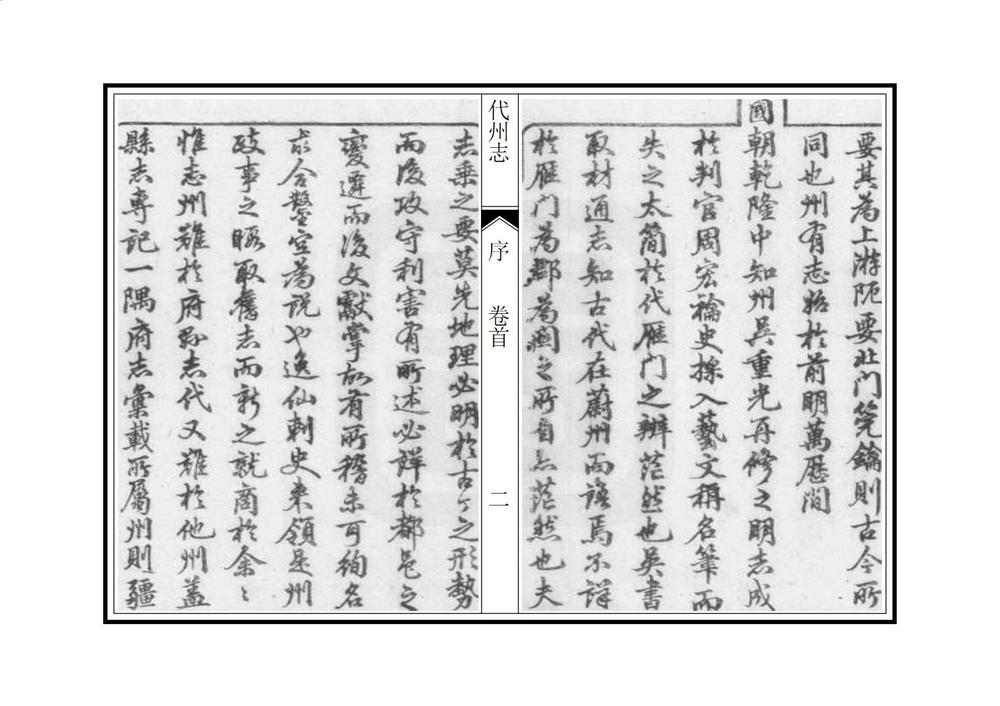 要其為上游阨要北門筦鑰則古今所
同也州有志始於前明萬歷間
國朝乾隆中知州吳重光再修之明志成
於判官周宏禴史採入藝文稱名筆而
失之太簡於代雁門之辨茫然也吳書
取材通志知古代在蔚州而誤焉不詳
於雁門為郡為關之所自亦茫然也夫
代州志
序
卷首
二
志乘之要莫先地理必明於古今之形勢
而後攻守利害有所述必詳於都邑之
變遷而後文獻掌故有所稽未可徇名
求合鑿空為說也逸仙刺史來領是州
政事之暇取舊志而新之就商於余余
惟志州難於府縣志代又難於他州蓋
縣志專記一隅府志彙載所屬州則疆